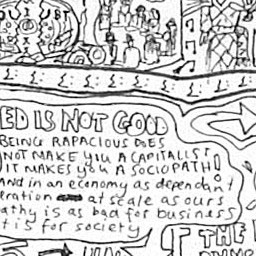 ED IS NOT GOOD
BEING RAPACIOUS DOES
NOT MAKE YOU A CAPITALIST
IT MAKES YOU A SOCIOPATH!
AND in an economy as dependant
eration at scale as ours
athy is as bad for business
t is for society
THE